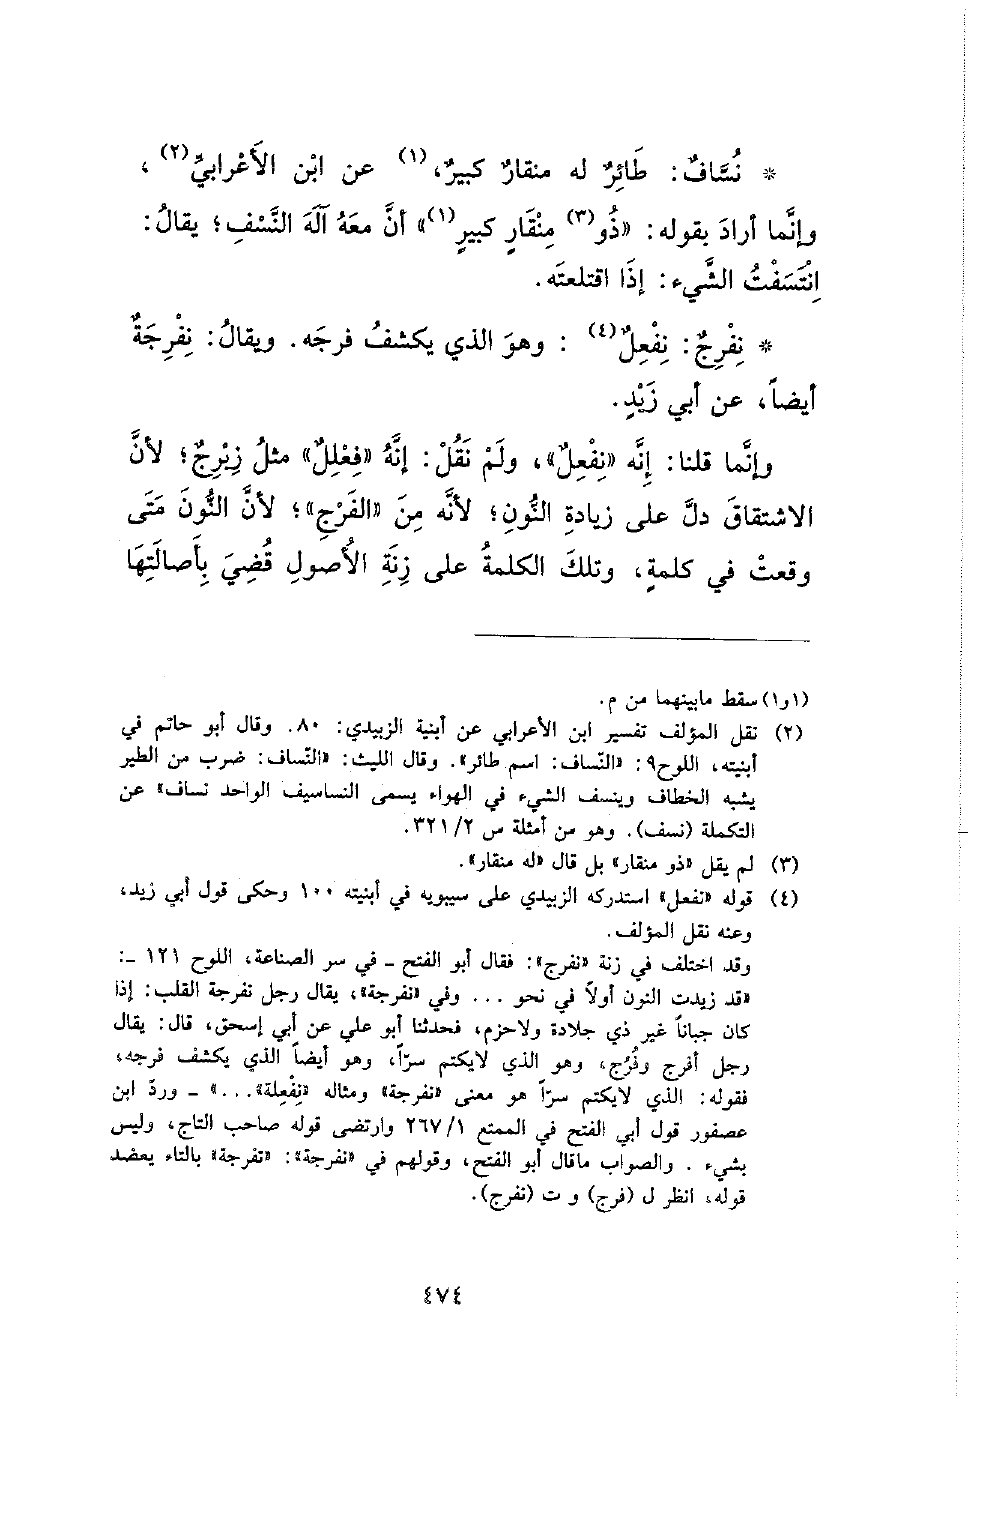 * نُسَّافٌ: طَائِرٌ له منقارٌ كبيرٌ،(١) عن ابْن الأَعْرابيِّ(٢)،
وإنَّما أرادَ بقوله: «ذُو(٣) مِنْقَارٍ كبيرٍ(١)» أنَّ معَهُ آلَةَ النَّسْفِ؛ يقالُ:
انْتَسَفْتُ الشَّيء: إذَا اقتلعتَه.
* نِفْرِجٌ: نِفْعِلٌ(٤) : وهوَ الذي يكشفُ فرجَه. ويقالُ: نِفْرِجَةٌ
أيضاً، عن أبي زَيْدٍ.
وإنَّما قلنا: إنَّه «نِفْعِلٌ»، ولَمْ نَقُلْ: إنَّهُ «فِعْلِلٌ» مثلُ زِبْرِجٌ؛ لأنَّ
الاشتقاقَ دلَّ على زيادةِ النُّونِ؛ لأنَّه مِنَ «الفَرْجِ»؛ لأنَّ النُّونَ مَتَى
وقعتْ في كلمةٍ، وتلكَ الكلمةُ على زِنَةِ الأُصولِ قُضِيَ بِأَصالَتِهَا
(١و١) سقط مابينهما من م.
(٢) نقل المؤلف تفسير ابن الأعرابي عن أبنية الزبيدي: ٨٠. وقال أبو حاتم في
أبنيته، اللوح٩: «النّساف: اسم طائر». وقال الليث: «النّساف: ضرب من الطير
يشبه الخطاف وينسف الشيء في الهواء يسمى النساسيف الواحد نساف» عن
التكملة (نسف). وهو من أمثلة س ٣٢١/٢.
(٣) لم يقل «ذو منقار» بل قال «له منقار».
(٤) قوله «نفعل» استدركه الزبيدي على سيبويه في أبنيته ١٠٠ وحكى قول أبي زيد،
وعنه نقل المؤلف.
وقد اختلف في زنة «نفرج»: فقال أبو الفتح ـ في سر الصناعة، اللوح ١٢١ ـ:
«قد زيدت النون أولاً في نحو ... وفي «نفرجة»، يقال رجل نفرجة القلب: إذا
كان جباناً غير ذي جلادة ولاحزم، فحدثنا أبو علي عن أبي إسحق، قال: يقال
رجل أفرج وفُرُج، وهو الذي لايكتم سرّاً، وهو أيضاً الذي يكشف فرجه،
فقوله: الذي لايكتم سرّاً هو معنى «نفرجة» ومثاله «نِفْعِلة»...» ـ وردّ ابن
عصفور قول أبي الفتح في الممتع ٢٦٧/١ وارتضى قوله صاحب التاج، وليس
بشيء . والصواب ماقال أبو الفتح، وقولهم في «نفرجة»: «تفرجة» بالتاء يعضد
قوله، انظر ل (فرج) و ت (نفرج).
٤٧٤